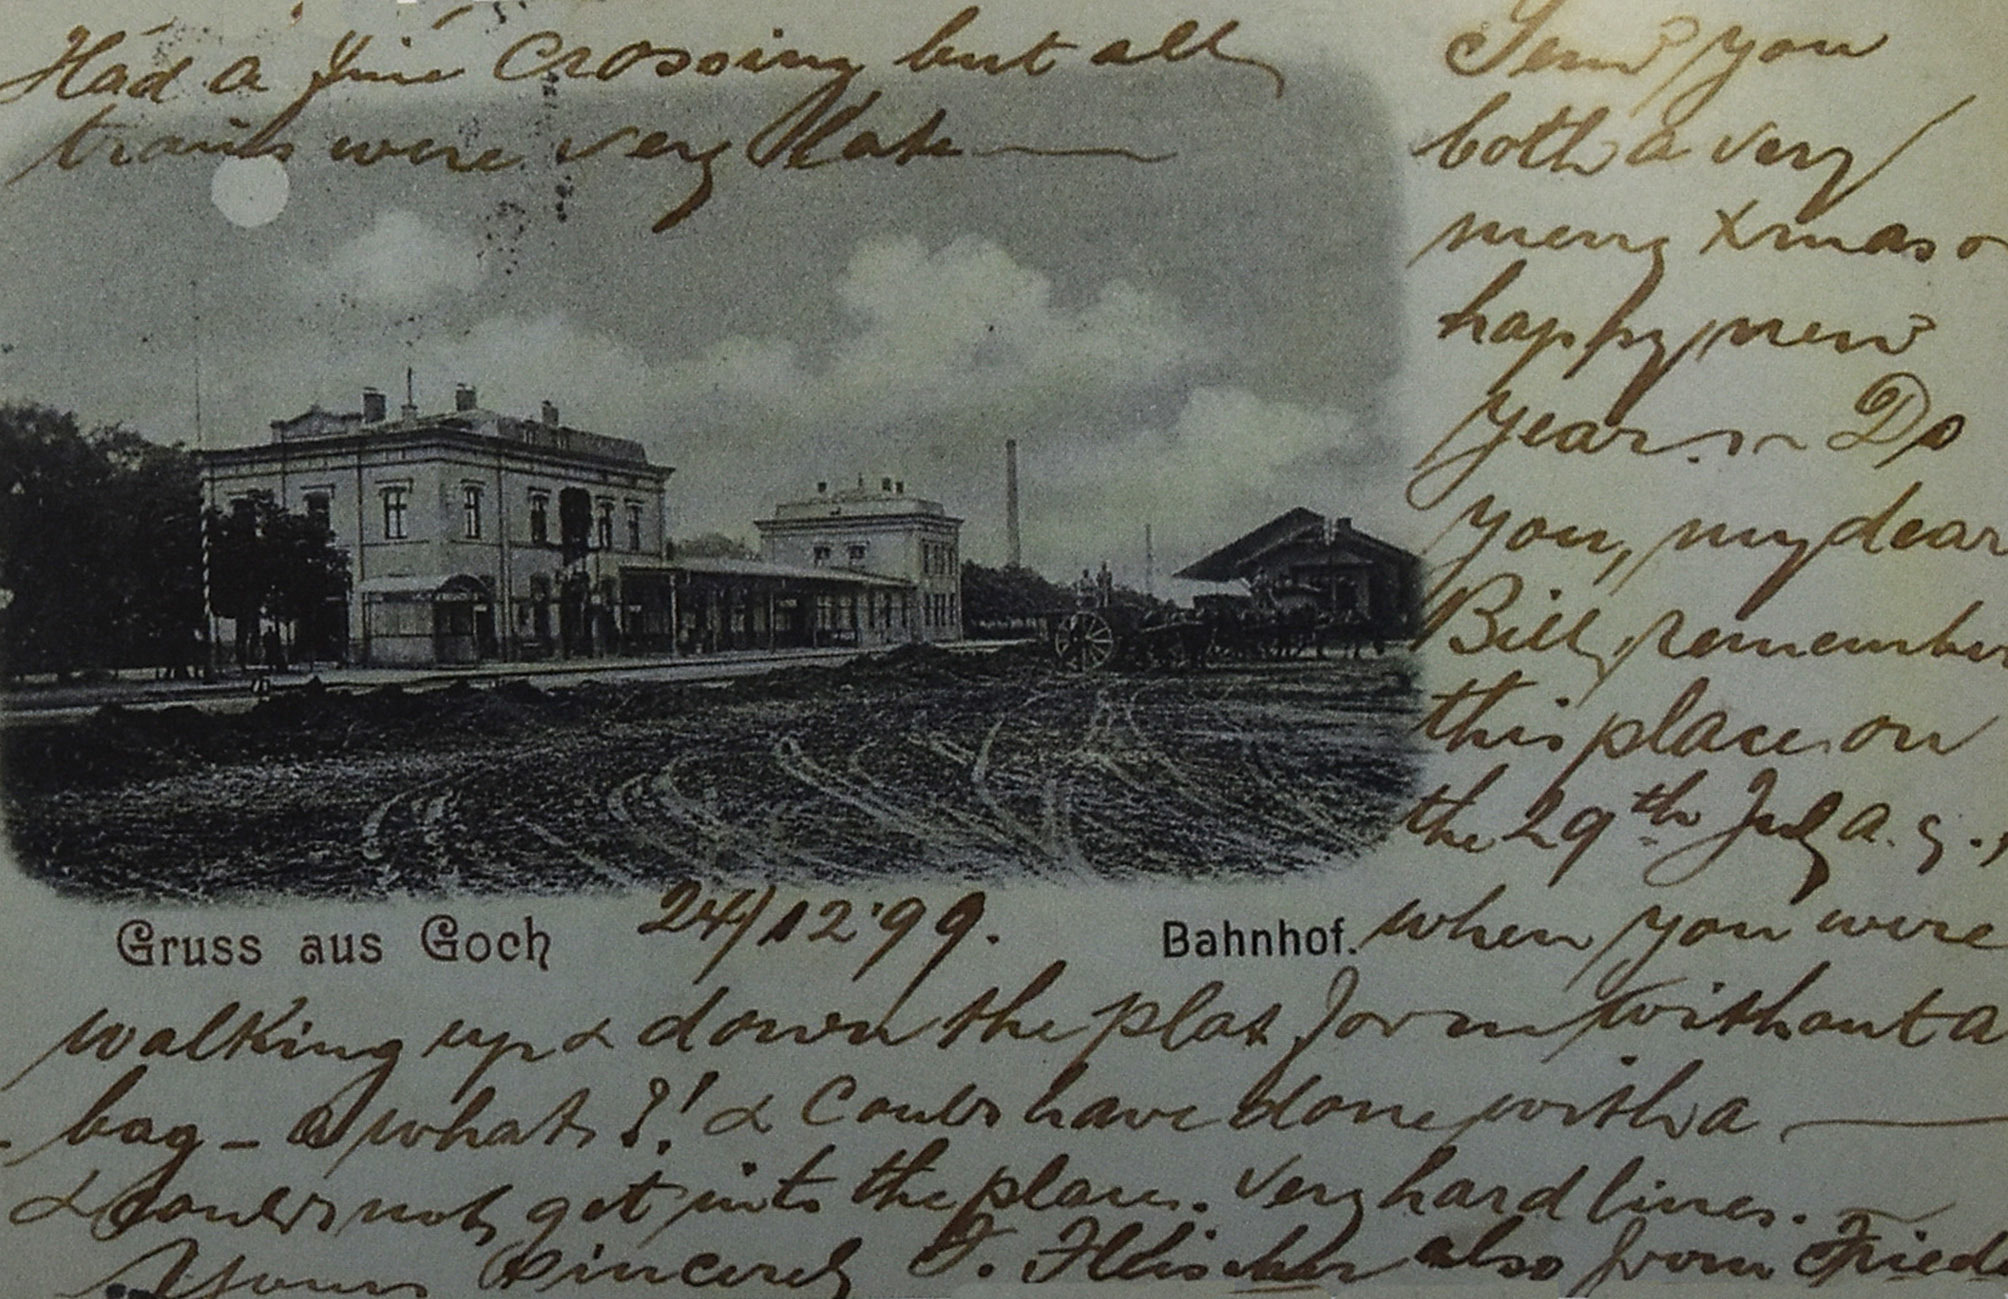 Had a fine crossing but all
trains were very late —
Send you
both a very
merry Xmas &
happy new
year. — Do
you, my dear
Bill, remember
this place on
the 29th July a. c.,
24/12 '99.
Gruss aus Goch
Bahnhof.
when you were
walking up & down the plat form without a
bag — a what?! & could have done with a —
& could not get into the place. Very hard lines. —
Yours sincerely F. Fleischer also from Frieda